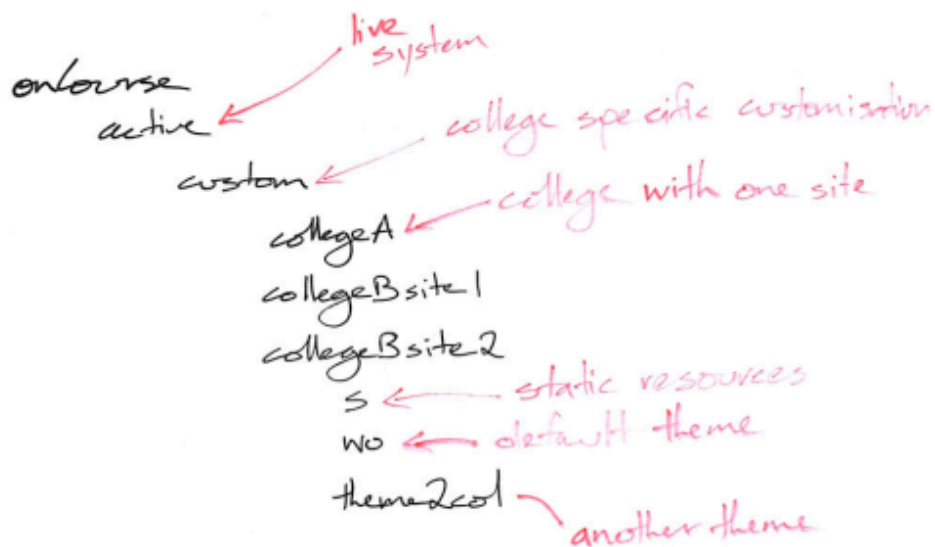 live
system
onCourse
active
college specific customisation
custom
college with one site
collegeA
collegeBsite1
collegeBsite2
static resources
s
default theme
wo
theme2col
another theme